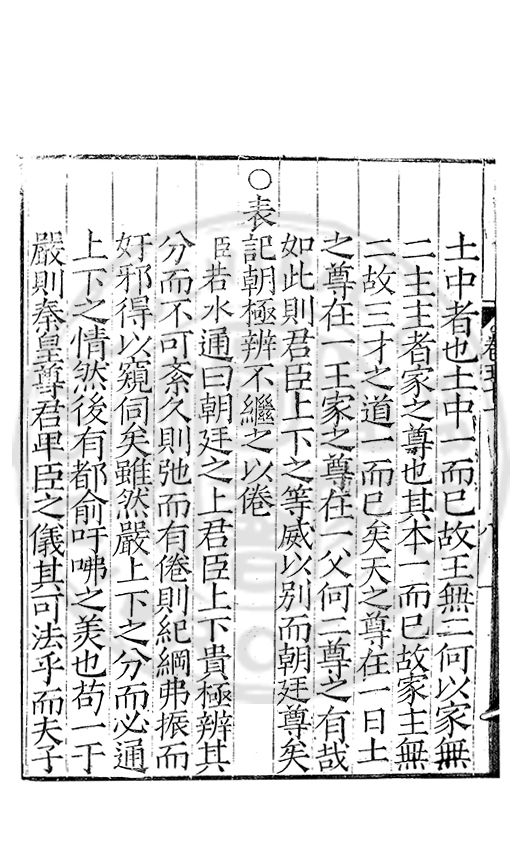 土中者也土中一而已故王無二何以家無
二主主者家之尊也其本一而已故家主無
二故三才之道一而已矣天之尊在一日土
之尊在一王家之尊在一父何二尊之有哉
如此則君臣上下之等威以別而朝廷尊矣
○表記朝極辨不繼之以倦
臣若水通曰朝廷之上君臣上下貴極辨其
分而不可紊久則弛而有倦則紀綱弗振而
奸邪得以窺伺矣雖然嚴上下之分而必通
上下之情然後有都俞吁咈之美也苟一于
嚴則秦皇尊君卑臣之儀其可法乎而夫子